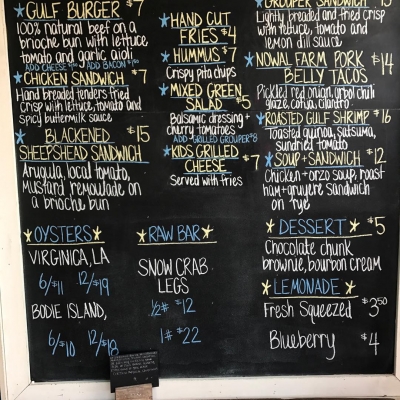 GULF BURGER $7
100% natural beef on a
brioche bun with lettuce
tomato and garlic aioli
ADD CHEESE ADD BACON
CHICKEN SANDWICH $7
Hand breaded tenders fried
crisp with lettuce, tomato and
spicy buttermilk sauce
BLACKENED $15
SHEEPSHEAD SANDWICH
Arugula, local tomato,
Mustard remoulade on
a brioche bun
OYSTERS
VIRGINICA, LA
6/$11 12/$19
BODIE ISLAND,
6/$10 12/$18
HAND CUT
FRIES $4
HUMMUS $7
Crispy pita chips
MIXED GREEN
SALAD $5
Balsamic dressing +
cherry tomatoes
ADD GRILLED GROUPER $8
KIDS GRILLED $7
CHEESE
Served with fries
RAW BAR
SNOW CRAB
LEGS
½# $12
1# $22
GROUPER SANDWICH
Lightly breaded and fried crisp
with lettuce, tomato and
lemon dill sauce
NOWAL FARM PORK $14
BELLY TACOS
Pickled red onion, arbol chili
glaze, cotija, cilantro
ROASTED GULF SHRIMP $16
Toasted quinoa, satsuma,
sundried tomato
SOUP + SANDWICH $12
Chicken + orzo soup, roast
ham + gruyere sandwich
on rye
DESSERT $5
Chocolate chunk
brownie, bourbon cream
LEMONADE
Fresh Squeezed $3.50
Blueberry $4